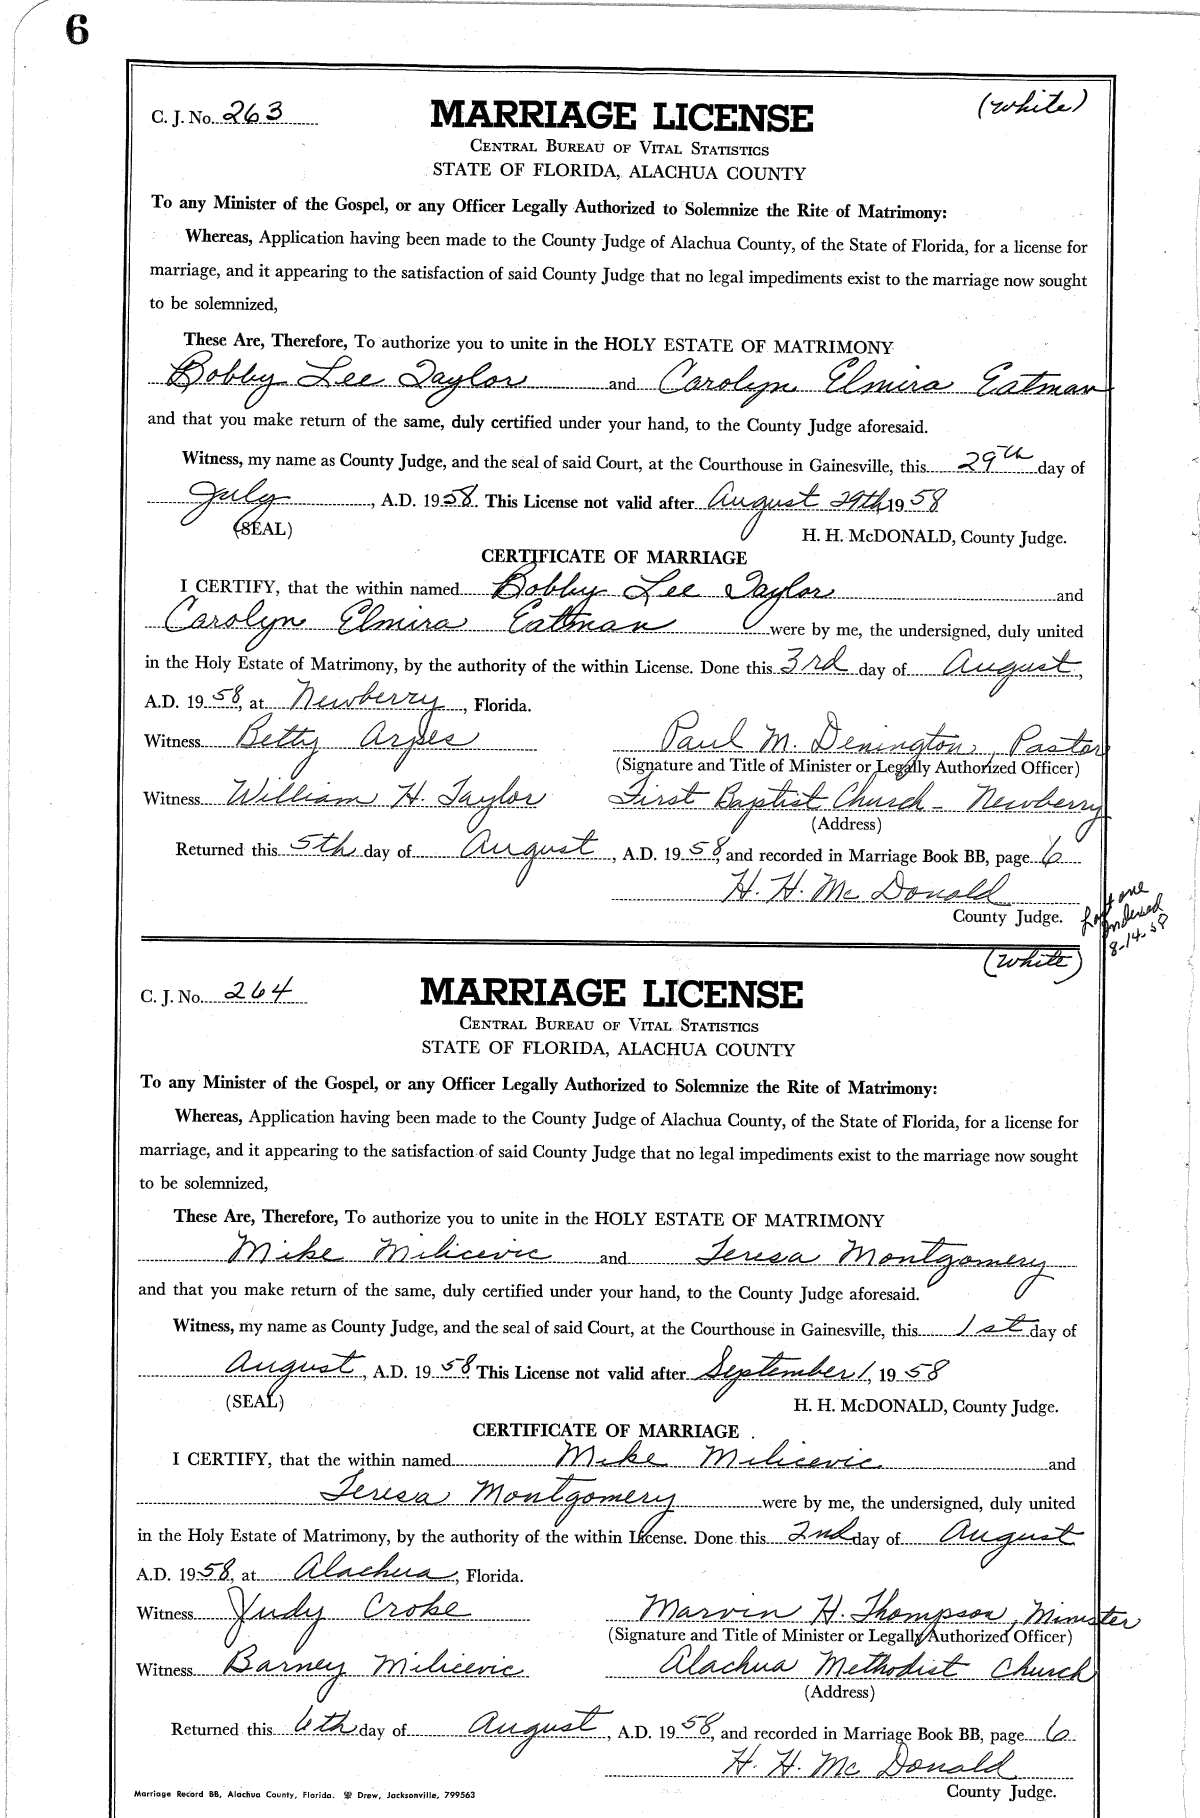 6
C. J. No. 263
MARRIAGE LICENSE
(White)
CENTRAL BUREAU OF VITAL STATISTICS
STATE OF FLORIDA, ALACHUA COUNTY
To any Minister of the Gospel, or any Officer Legally Authorized to Solemnize the Rite of Matrimony:
Whereas, Application having been made to the County Judge of Alachua County, of the State of Florida, for a license for
marriage, and it appearing to the satisfaction of said County Judge that no legal impediments exist to the marriage now sought
to be solemnized,
These Are, Therefore, To authorize you to unite in the HOLY ESTATE OF MATRIMONY
Bobby Lee Taylor and Carolyn Elmira Eatman
and that you make return of the same, duly certified under your hand, to the County Judge aforesaid.
Witness, my name as County Judge, and the seal of said Court, at the Courthouse in Gainesville, this 29th day of
July, A.D. 1958. This License not valid after August 29th, 1958
(SEAL) H. H. McDONALD, County Judge.
CERTIFICATE OF MARRIAGE
I CERTIFY, that the within named Bobby Lee Taylor and
Carolyn Elmira Eatman were by me, the undersigned, duly united
in the Holy Estate of Matrimony, by the authority of the within License. Done this 3rd day of August,
A.D. 1958, at Newberry, Florida.
Witness Betty Paul M. Denington, Pastor
(Signature and Title of Minister or Legally Authorized Officer)
Witness William H. Taylor First Baptist Church - Newberry
(Address)
Returned this 5th day of August, A.D. 1958, and recorded in Marriage Book BB, page 6
H. H. McDonald
County Judge.
Last one
indexed
8-14-58
(White)
C. J. No. 264
MARRIAGE LICENSE
CENTRAL BUREAU OF VITAL STATISTICS
STATE OF FLORIDA, ALACHUA COUNTY
To any Minister of the Gospel, or any Officer Legally Authorized to Solemnize the Rite of Matrimony:
Whereas, Application having been made to the County Judge of Alachua County, of the State of Florida, for a license for
marriage, and it appearing to the satisfaction of said County Judge that no legal impediments exist to the marriage now sought
to be solemnized,
These Are, Therefore, To authorize you to unite in the HOLY ESTATE OF MATRIMONY
Mike Milicevic and Teresa Montgomery
and that you make return of the same, duly certified under your hand, to the County Judge aforesaid.
Witness, my name as County Judge, and the seal of said Court, at the Courthouse in Gainesville, this 1st day of
August, A.D. 1958. This License not valid after September 1, 1958
(SEAL) H. H. McDONALD, County Judge.
CERTIFICATE OF MARRIAGE
I CERTIFY, that the within named Mike Milicevic and
Teresa Montgomery were by me, the undersigned, duly united
in the Holy Estate of Matrimony, by the authority of the within License. Done this 2nd day of August
A.D. 1958, at Alachua, Florida.
Witness Judy Croke Marvin H. Thompson, Minister
(Signature and Title of Minister or Legally Authorized Officer)
Witness Barney Milicevic Alachua Methodist Church
(Address)
Returned this 6th day of August, A.D. 1958, and recorded in Marriage Book BB, page 6
H. H. McDonald
County Judge.
Marriage Record BB, Alachua County, Florida. Drew, Jacksonville, 799563